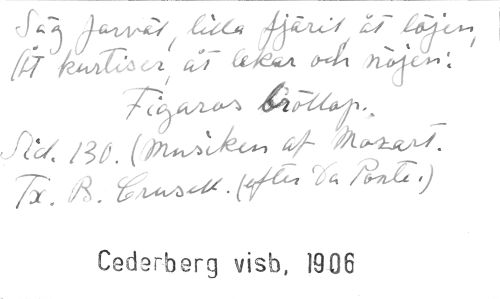 Säg farväl, lilla fjäril, åt löjen,
Åt kurtiser, åt lekar och nöjen:
Figaros bröllop.
Sid. 130. (Musiken af Mozart.
Tx. B. Crusell. (efter Da Ponte.)
Cederberg visb, 1906